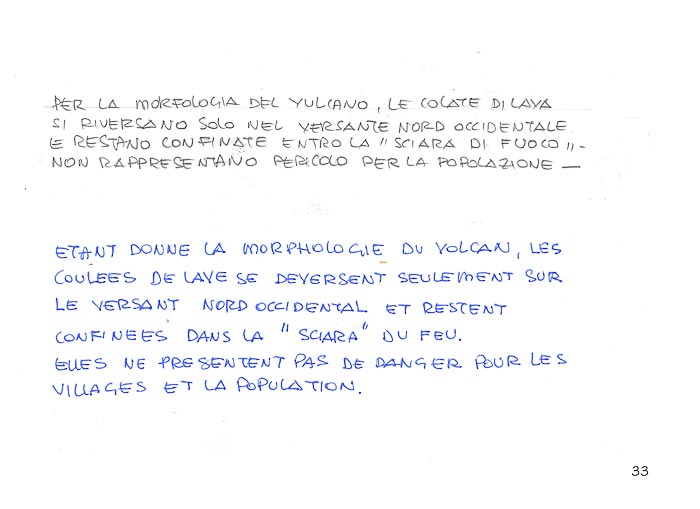 PER LA MORFOLOGIA DEL VULCANO, LE COLATE DI LAVA
SI RIVERSANO SOLO NEL VERSANTE NORD OCCIDENTALE
E RESTANO CONFINATE ENTRO LA "SCIARA DI FUOCO" -
NON RAPPRESENTANO PERICOLO PER LA POPOLAZIONE —
ETANT DONNE LA MORPHOLOGIE DU VOLCAN, LES
COULEES DE LAVE SE DEVERSENT SEULEMENT SUR
LE VERSANT NORD OCCIDENTAL ET RESTENT
CONFINEES DANS LA "SCIARA" DU FEU.
ELLES NE PRESENTENT PAS DE DANGER POUR LES
VILLAGES ET LA POPULATION.
33